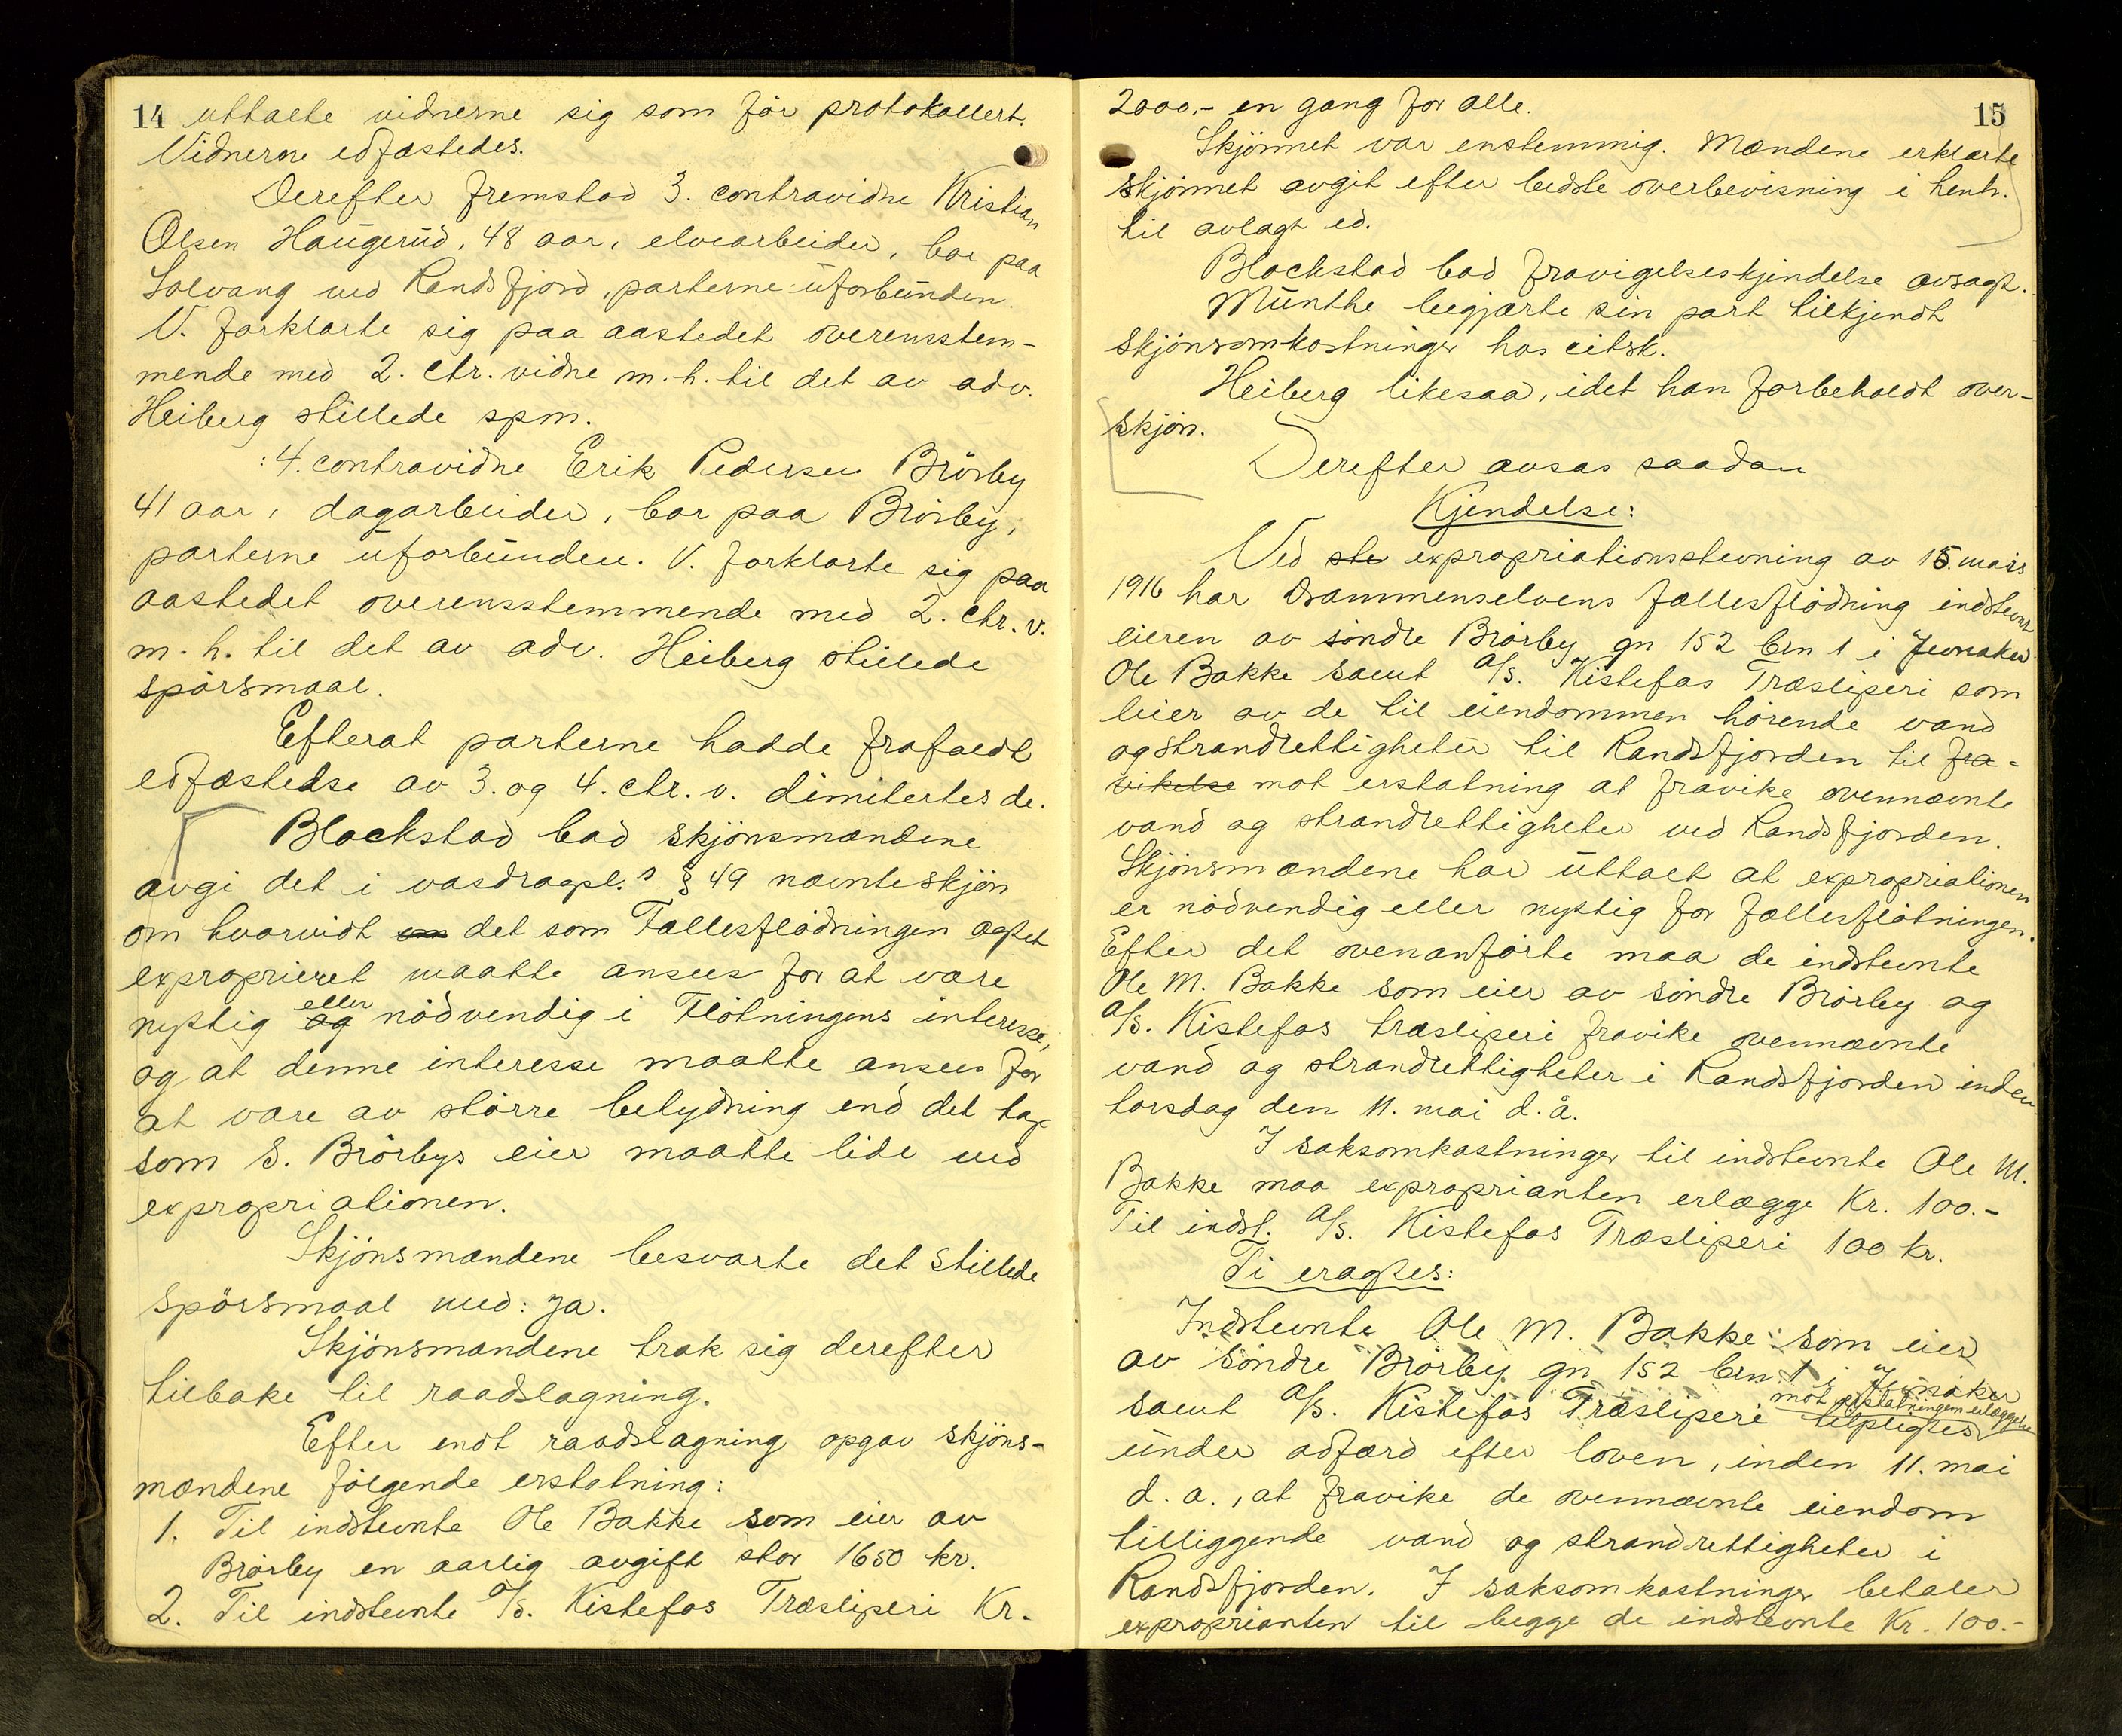 14 uttalte vidnerne sig som för protokollert.
Vidnerne edfæstedes.
Derefter fremstod 3. contravidne Kristian
Olsen Haugerud, 48 aar, elvearbeider, bor paa
Solvang ved Randsfjord, parterne uforbunden.
V. forklarte sig paa aastedet overensstem-
mende med 2. ctr. vidne m. h. til det av adv.
Heiberg stillede spm.
: 4. contravidne Erik Pedersen Brörby
41 aar, dagarbeider, bor paa Brörby,
parterne uforbunden. V. forklarte sig paa
aastedet overensstemmende med 2. ctr. v.
m. h. til det av adv. Heiberg stillede
spörsmaal.
Efterat parterne hadde frafaldt
edfæstelse av 3. og 4. ctr. v. dimitertes de.
Blackstad bad skjönsmændene
avgi det i vasdragsl.s § 49 nævnte skjön
om hvorvidt om det som Fællesflödningen agtet
expropriert maatte ansees for at være
nyttig og eller nödvendig i Flötningens interesse,
og at denne interesse maatte ansees for
at være av större betydning end det tap
som S. Brörbys eier maatte lide ved
expropriationen.
Skjönsmændene besvarte det stillede
spörsmaal med: ja.
Skjönsmændene trak sig derefter
tilbake til raadslagning.
Efter endt raadslagning opgav skjöns-
mændene fölgende erstatning:
1. Til indstevnte Ole Bakke som eier av
Brörby en aarlig avgift stor 1650 kr.
2. Til indstevnte A/S. Kistefos Træsliperi Kr.
15
2000,- en gang for alle.
Skjönnet var enstemmig. Mændene erklærte
skjönnet avgit efter bedste overbevisning i henh.
til avlagt ed.
Blackstad bad fravigelseskjendelse avsagt.
Munthe begjærte sin part tilkjendt
skjönsomkostninger hos citsk.
Heiberg likesaa, idet han forbeholdt over-
skjön.
Derefter avsas saadan
Kjendelse:
Ved ste expropriationsstevning av 15. mars
1916 har Drammenselvens fællesflödning indstevnt
eieren av söndre Brörby gn 152 brn 1 i Jevnaker
Ole Bakke samt A/S. Kistefos Træsliperi som
leier av de til eiendommen hörende vand
og strandrettigheter til Randsfjorden til fra-
vikelse mot erstatning at fravike ovennævnte
vand og strandrettigheter ved Randsfjorden.
Skjönsmændene har uttalt at expropriationen
er nödvendig eller nyttig for fællesflötningen.
Efter det ovenanförte maa de indstevnte
Ole M. Bakke som eier av söndre Brörby og
A/S. Kistefos træsliperi fravike ovennævnte
vand og strandrettigheter i Randsfjorden inden
torsdag den 11. mai d. å.
I saksomkostninger til indstevnte Ole M.
Bakke maa exproprianten erlægge Kr. 100.-
Til indst. A/S. Kistefos Træsliperi 100 kr.
Ti eragtes:
Indstevnte Ole M. Bakke som eier
av söndre Brörby gn 152 brn. 1 i Jevnaker
samt A/S. Kistefos Træsliperi tilpligtes mot erstatningens erlæggelse
under adfærd efter loven, inden 11. mai
d. a., at fravike de ovennævnte eiendom
tilliggende vand og strandrettigheter i
Randsfjorden. I saksomkostninger betaler
exproprianten til begge de indstevnte Kr. 100.-